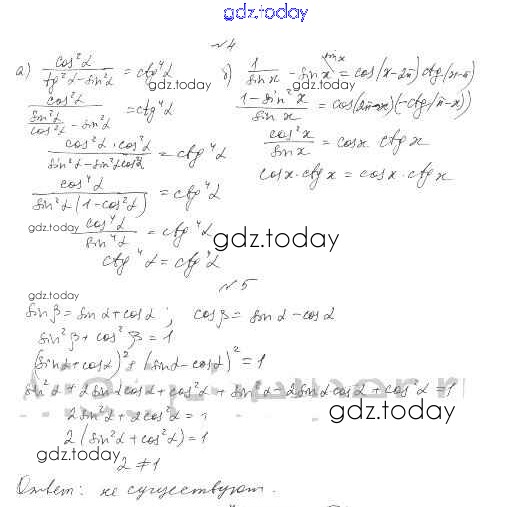 gdz.today
№4
а) cos²α / (tg²α - sin²α) = ctg⁴α
cos²α / (sin²α/cos²α - sin²α) = ctg⁴α
cos²α · cos²α / (sin²α - sin²α cos²α) = ctg⁴α
cos⁴α / (sin²α (1 - cos²α)) = ctg⁴α
cos⁴α / sin⁴α = ctg⁴α
ctg⁴α = ctg⁴α
б) 1/sin x - sin x = cos(x-2π) ctg(x-π)
(1 - sin²x) / sin x = cos(2π-x)(-ctg(π-x))
cos²x / sin x = cos x ctg x
cos x · ctg x = cos x · ctg x
gdz.today
gdz.today
gdz.today
gdz.today
№5
gdz.today
sin β = sin α + cos α ; cos β = sin α - cos α
sin²β + cos²β = 1
(sin α + cos α)² + (sin α - cos α)² = 1
sin²α + 2 sin α cos α + cos²α + sin²α - 2 sin α cos α + cos²α = 1
2 sin²α + 2 cos²α = 1
gdz.today
2 (sin²α + cos²α) = 1
gdz.today
2 ≠ 1
Ответ: не существуют.
gdz.today